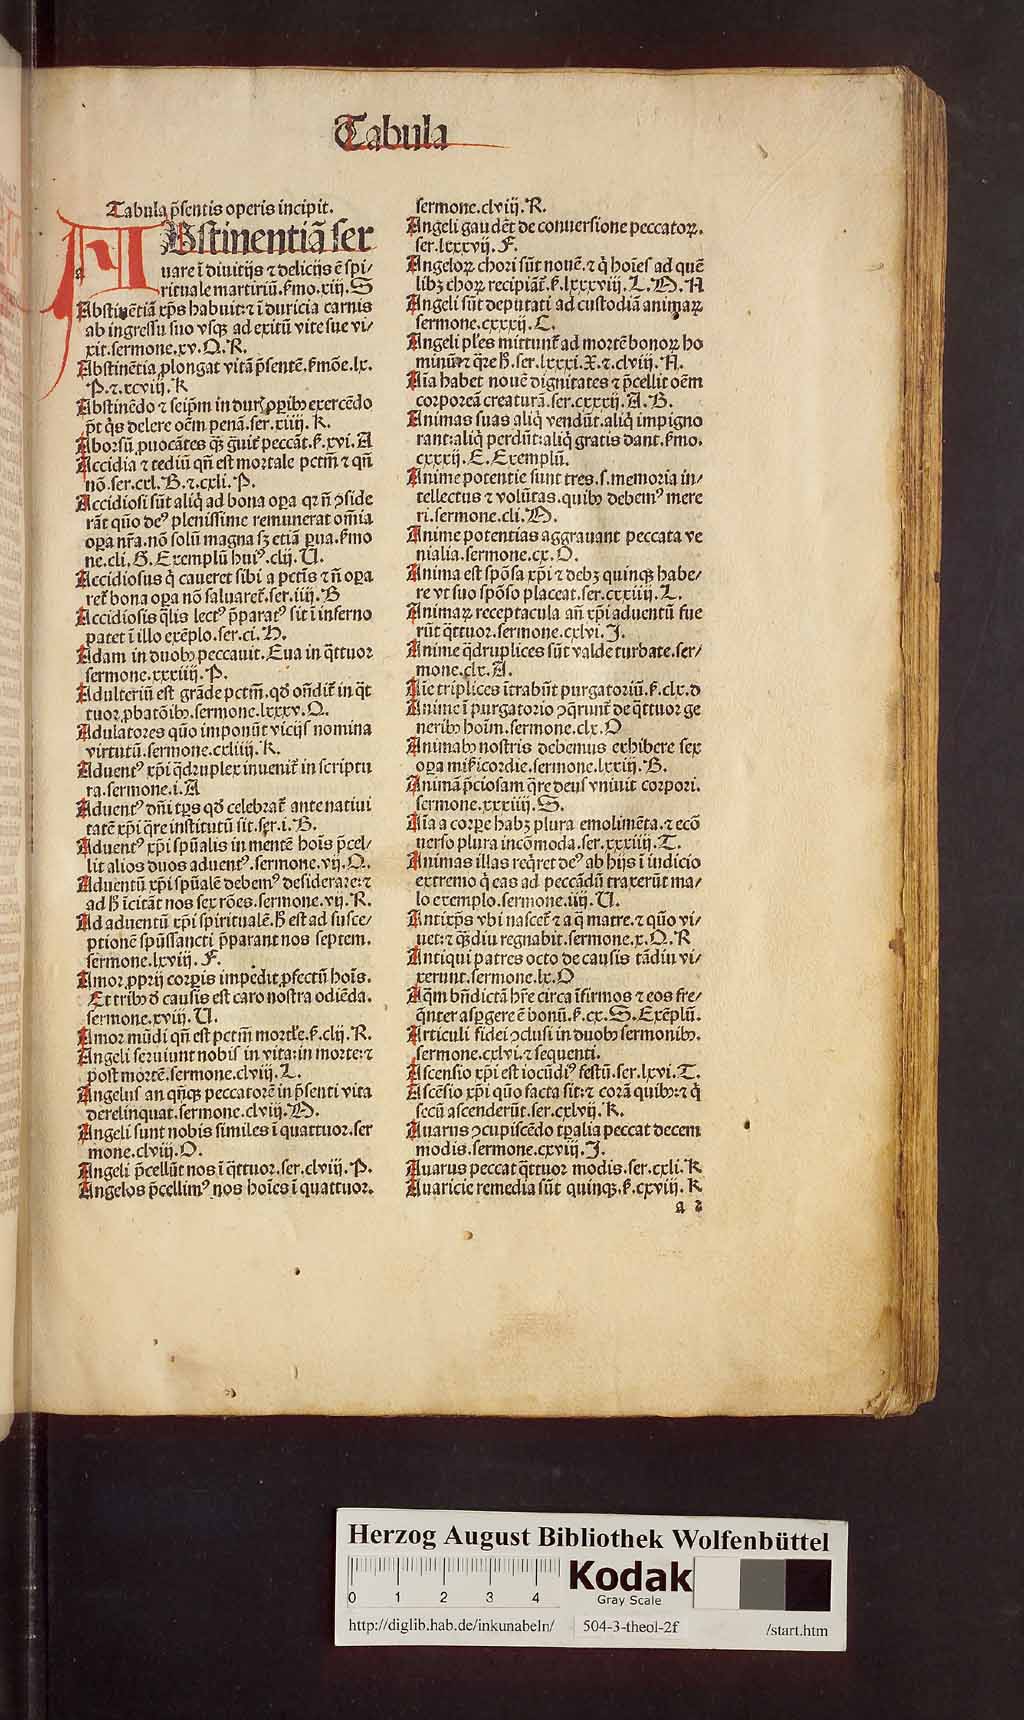 Tabula
Tabula p̄sentis operis incipit.
ABstinentiā ser
uare ī diuitijs ⁊ delicijs ē spi/
rituale martiriū. ẜmo.xiij.S
Abstinētiā xp̄s habuit:⁊ ī duricia carnis
ab ingressu suo vsqꝫ ad exitū vite sue vi/
xit.sermone.xv.Q.R.
Abstinētia ꝓlongat vitā p̄sentē.ẜmōe.lx.
P.⁊.xcviij.K
Abstinēdo ⁊ seip̄m in
p̄t q̄s delere oēm penā.ser.xiiij.K.
Aborsū ꝓuocātes qꝫ ḡuit᷑ peccāt.ẜ.xvi.A
Accidia ⁊ tediū qn̄ est mortale pctm̄ ⁊ qn̄
nō.ser.cxl.B.⁊.cxli.P.
Accidiosi sūt aliq̇ ad bona oꝑa qꝛ n̄ ꝯside
rāt quō deꝰ plenissime remunerat om̄ia
oꝑa nr̄a.nō solū magna sꝫ etiā ꝑua.ẜmo
ne.cli.G.Exemplū huiꝰ.clij.U.
Accidiosus q̇ caueret sibi a pctīs ⁊ n̄ oꝑa
ret᷑ bona oꝑa nō saluaret᷑.ser.iij.B
Accidiosis q̄lis lectꝰ p̄paratꝰ sit ī inferno
patet ī illo exēplo.ser.ci.H.
Adam in duobꝰ peccauit.Eua in q̄ttuor
sermone.xxxiiij.P.
Adulteriū est grāde pctm̄.qd̄ on̄dit᷑ in q̄t
tuor ꝓbatōibꝰ.sermone.lxxxv.Q.
Adulatores quō imponūt vicijs nomina
virtutū.sermone.cxliiij.K.
Aduentꝰ xp̄i q̄druplex inuenit᷑ in scriptu
ra.sermone.i.A
Aduentꝰ dn̄i tp̄s qd̄ celebrat᷑ ante natiui
tatē xp̄i q̄re institutū sit.ser.i.B.
Aduentꝰ xp̄i spūalis in mentē hoīs p̄cel/
lit alios duos aduentꝰ.sermone.vij.Q.
Aduentū xp̄i spūalē debemꝰ desiderare:⁊
ad ħ īcitāt nos sex rōes.sermone.vij.R.
Ad aduentū xp̄i spiritualē.ħ est ad susce/
ptionē spūssancti p̄parant nos septem.
sermone.lxviij.F.
Amor ꝓprij corꝑis impedit ꝓfectū hoīs.
Et tribꝰ d̄ causis est caro nostra odiēda.
sermone.xviij.U.
Amor mūdi qn̄ est pctm̄ mortl̓e.ẜ.clij.R.
Angeli seruiunt nobis in vita:in morte:⁊
post mortē.sermone.clviij.L.
Angelus an qn̄qꝫ peccatorē in p̄senti vita
derelinquat.sermone.clviij.M.
Angeli sunt nobis similes ī quattuor.ser
mone.clviij.O.
Angeli p̄cellūt nos ī q̄ttuor.ser.clviij.P.
Angelos p̄cellimꝰ nos hoīes ī quattuor.
sermone.clviij.R.
Angeli gaudēt de conuersione peccatoꝝ.
ser.lxxxvij.F.
Angeloꝝ chori sūt nouē.⁊ q̇ hoīes ad quē
libꝫ choꝝ recipiāt᷑.ẜ.lxxxviij.L.M.N
Angeli sūt deputati ad custodiā animaꝝ
sermone.cxxxij.C.
Angeli pl̓es mittunt᷑ ad mortē bonoꝝ ho
minū:⁊ q̄re ħ.ser.lxxxi.X.⁊.clviij.N.
Aīa habet nouē dignitates ⁊ p̄cellit oēm
corporeā creaturā.ser.cxxxij.A.B.
Animas suas aliq̇ vendūt.aliq̇ impigno
rant:aliq̇ perdūt:aliq̇ gratis dant.ẜmo.
cxxxij.E.Exemplū.
Anime potentie sunt tres.s.memoria in/
tellectus ⁊ volūtas.quibꝰ debemꝰ mere
ri.sermone.cli.M.
Anime potentias aggrauant peccata ve
nialia.sermone.cx.O.
Anima est spōsa xp̄i ⁊ debꝫ quinqꝫ habe/
re vt suo spōso placeat.ser.cxxiiij.L.
Animaꝝ receptacula an̄ xp̄i aduentū fue
rūt q̄ttuor.sermone.cxlvi.J.
Anime q̄druplices sūt valde turbate.ser/
mone.clx.A.
Aīe triplices ītrabūt purgatoriū.ẜ.clx.d
Anime ī purgatorio ꝯq̄runt᷑ de q̄ttuor ge
neribꝰ hoīm.sermone.clx.O
Animabꝰ nostris debemus exhibere sex
oꝑa mis̓icordie.sermone.lxxiij.B.
Animā p̄ciosam q̄re deus vniuit corpori.
sermone.xxxiiij.S.
Aīa a corꝑe habꝫ plura emolimēta.⁊ ecō
uerso plura incōmoda.ser.xxxiiij.T.
Animas illas reꝗret deꝰ ab hijs ī iudicio
extremo q̇ eas ad peccādū traxerūt ma/
lo exemplo.sermone.iiij.U.
Antixp̄s vbi nascet᷑ ⁊ a q̄ matre.⁊ quō vi/
uet:⁊ qꝫdiu regnabit.sermone.x.Q.R
Antiqui patres octo de causis tādiu vi/
xerunt.sermone.lx.O
Aq̄m bn̄dictā hr̄e circa īfirmos ⁊ eos fre/
q̄nter asꝑgere ē bonū.ẜ.cx.S.Exēplū.
Articuli fidei ꝯclusi in duobꝰ sermonibꝰ.
sermone.cxlvi.⁊ sequenti.
Ascensio xp̄i est iocūdiꝰ festū.ser.lxvi.T.
Ascēsio xp̄i quō facta sit:⁊ corā quibꝰ:⁊ q̇
secū ascenderūt.ser.cxlvij.K.
Auarus ꝯcupiscēdo tꝑalia peccat decem
modis.sermone.cxviij.J.
Auarus peccat q̄ttuor modis.ser.cxli.K
Auaricie remedia sūt quinqꝫ.ẜ.cxviij.K
a 2
Herzog August Bibliothek Wolfenbüttel
0 1 2 3 4
Kodak
Gray Scale
http://diglib.hab.de/inkunabeln/
504-3-theol-2f
/start.htm